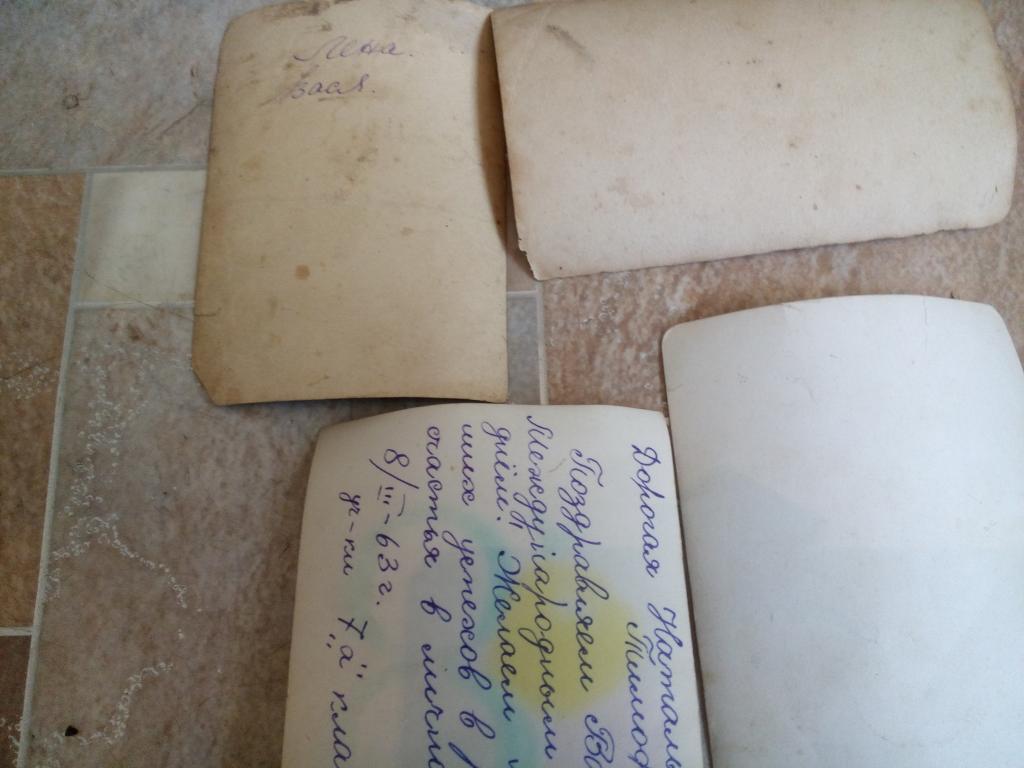 Лена.
Вася.
Дорогая Наталь
Тимоф
Поздравляем Ва
Международным
днём. Желаем
ших успехов в
счастья в лично
8/III-63 г.
уч-ки 7 "а" кла